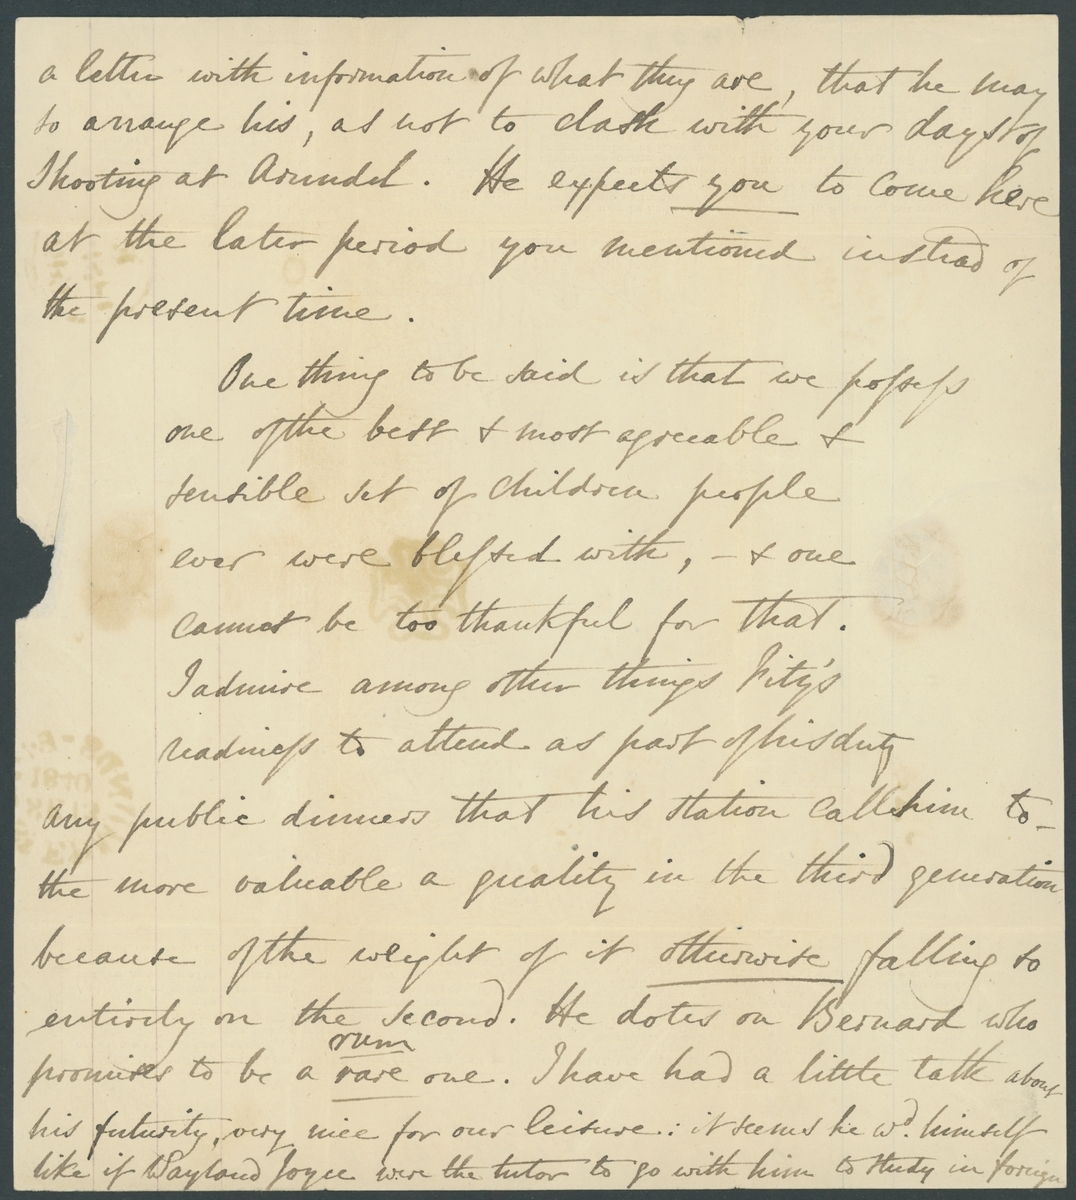 a letter with information of what they are, that he may
so arrange his, as not to clash with your days of
Shooting at Arundel. He expects you to come here
at the later period you mentioned instead of
the present time.
One thing to be said is that we possess
one of the best & most agreeable &
sensible set of children people
ever were blessed with, - & one
cannot be too thankful for that.
I admire among other things Fitz's
readiness to attend as part of his duty
any public dinners that his station calls him to -
the more valuable a quality in the third generation
because of the weight of it otherwise falling so
entirely on the second. He dotes on Bernard who
promises to be a rare rum one. I have had a little talk about
his futurity, very nice for our leisure: it seems he wd. himself
like if Wayland Joyce were the tutor to go with him to study in foreign